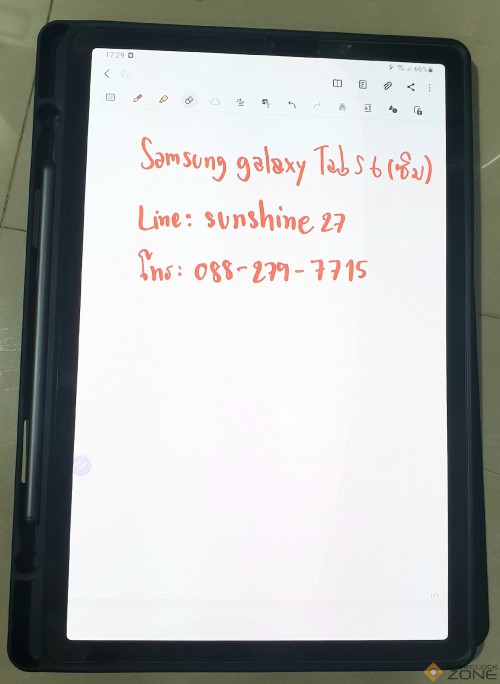 17:29
66%
Samsung galaxy Tab S6 (ซิม)
Line: sunshine 27
โทร: 088-279-7715
1/1
OVERCLOCK
ZONE